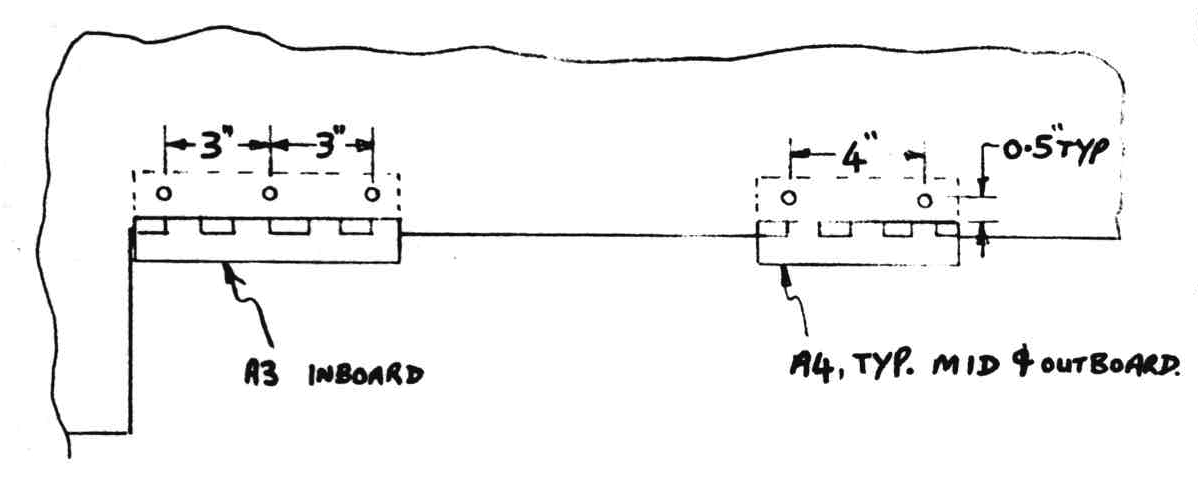 3" 3"
4"
0.5" TYP
A3 INBOARD
A4, TYP. MID & OUTBOARD.